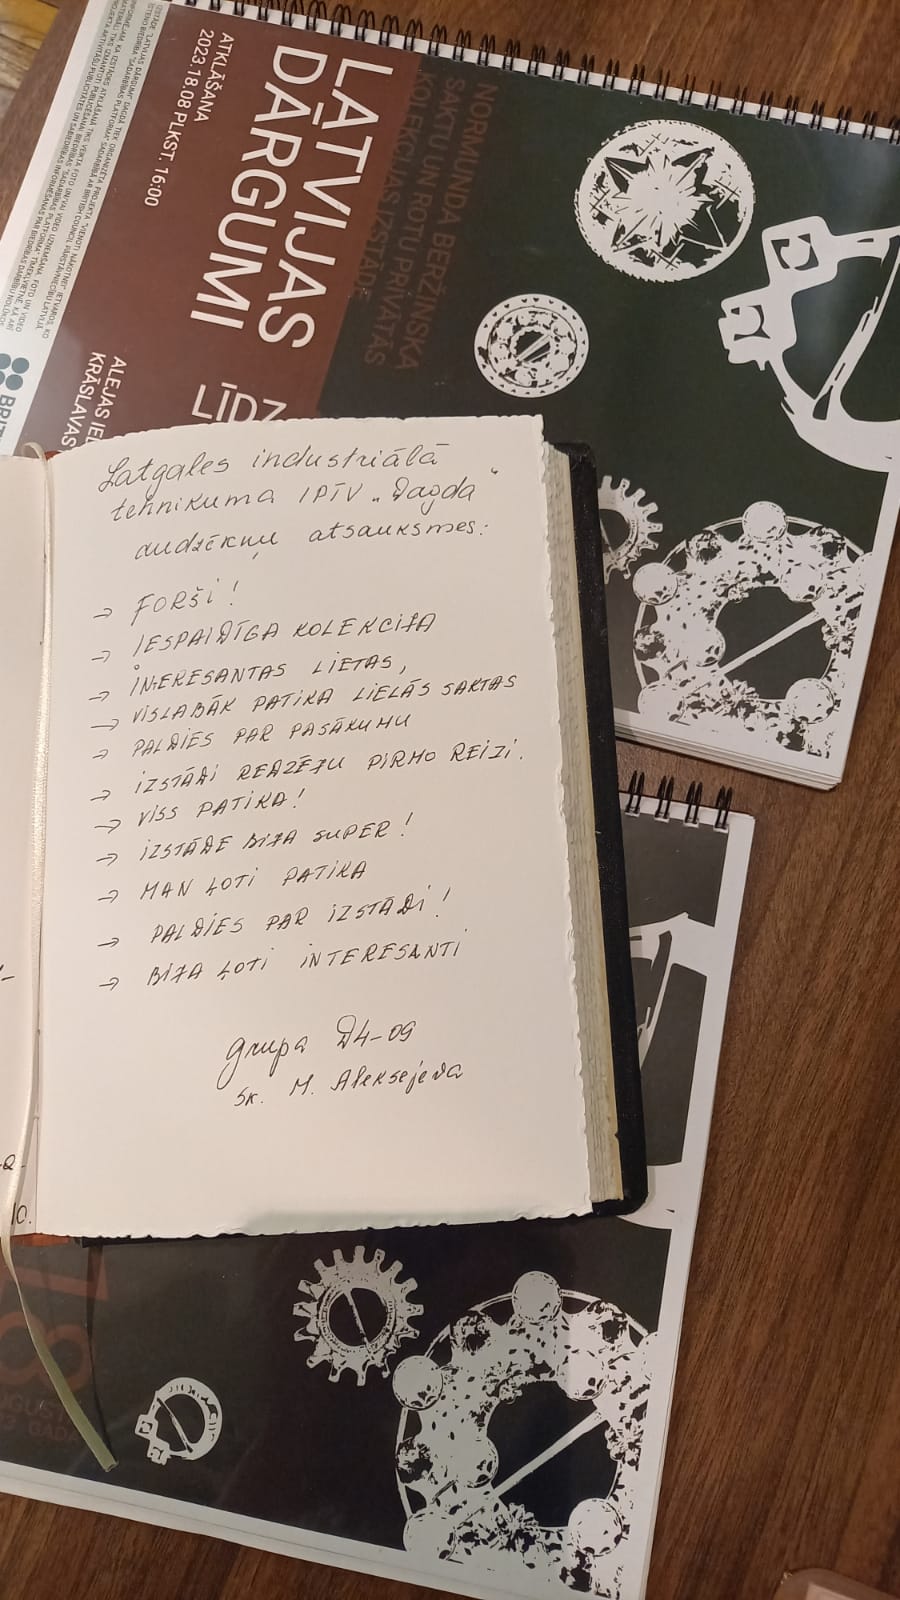 LATVIJAS
DĀRGUMI
ATKLĀŠANA
2023.18.08 PLKST. 16:00
NORMUNDA BERŽINSKA
SAKTU UN ROTU PRIVĀTĀS
KOLEKCIJAS IZSTĀDE
LĪDZ
ALEJAS IEL
KRĀSLAVAS
BRITI
Latgales industriālā
tehnikuma IPĪV „Dagda"
audzēkņu atsauksmes:
→ FORŠI!
→ IESPAIDĪGA KOLEKCIJA
→ INERESANTAS LIETAS,
→ VISLABĀK PATIKA LIELĀS SAKTAS
→ PALDIES PAR PASĀKUMU
→ IZSTĀDI REDZĒJU PIRMO REIZI.
→ VISS PATIKA!
→ IZSTĀDE BIJA SUPER!
→ MAN ĻOTI PATIKA
→ PALDIES PAR IZSTĀDI!
→ BIJA ĻOTI INTERESANTI
grupa D4-09
sk. M. Aleksejeva
10.
18